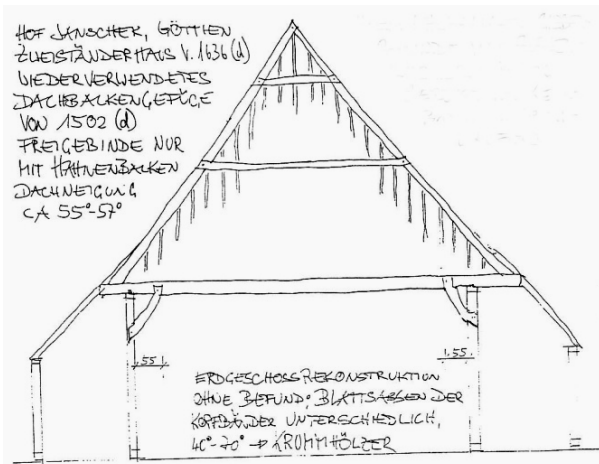 HOF JANSCHEK, GÖTTIEN
ZWEISTÄNDERHAUS V. 1636 (d)
WIEDERVERWENDETES
DACHBALKENGEFÜGE
VON 1502 (d)
FREIGEBINDE NUR
MIT HAHNENBALKEN
DACHNEIGUNG
CA 55°-57°
55
1.55
ERDGESCHOSSREKONSTRUKTION
OHNE BEFUND; BLATTSASSEN DER
KOPFBÄNDER UNTERSCHIEDLICH,
40°-70° → KRUMMHÖLZER